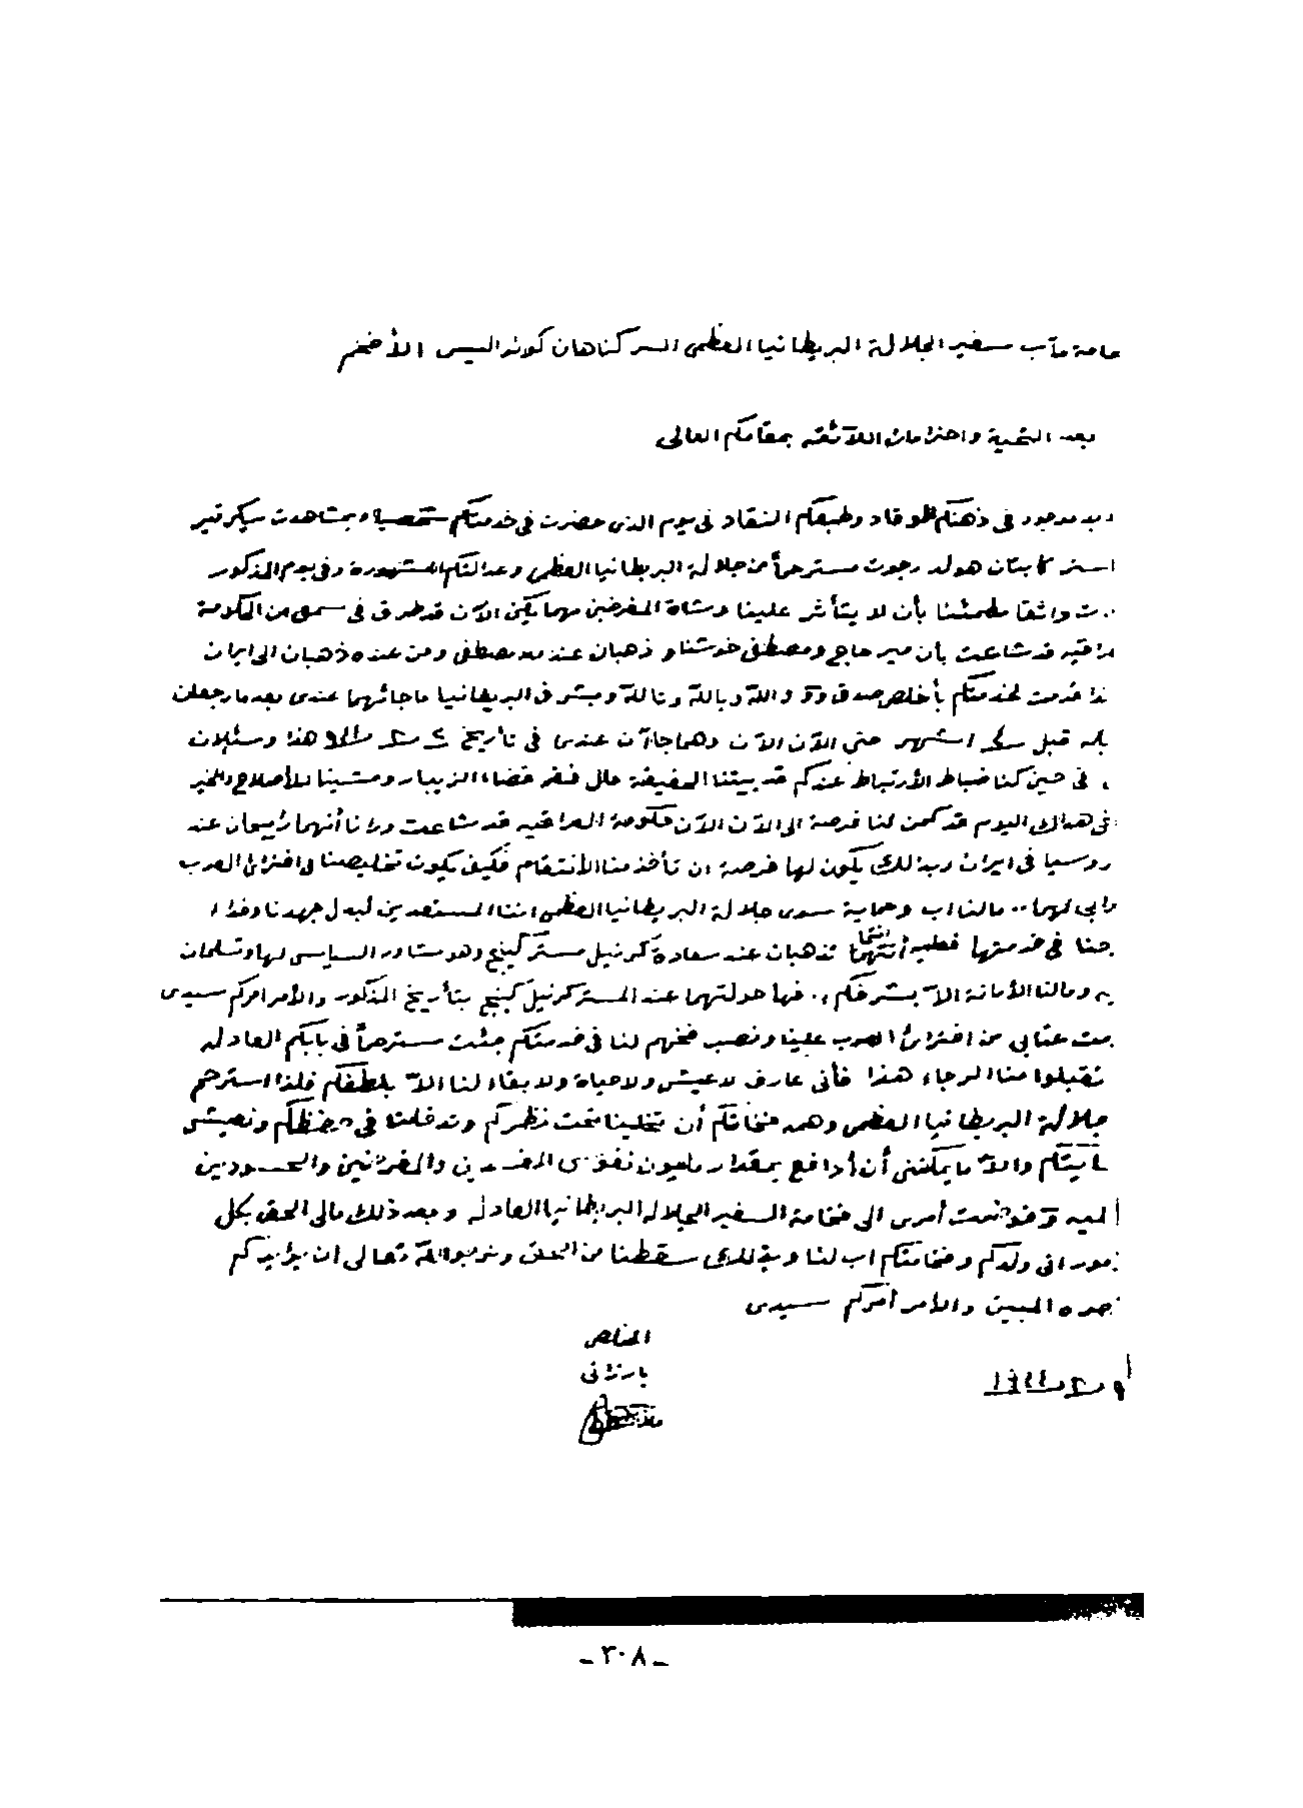 مآب سفير الجلالة البريطانيا العظمى السر كناهان كورنواليس الأفخم
بعد التحية واحترامات اللآئقه بمقامكم العالى
موجود فى ذهنكم وقاد وطبعكم النقاد فى يوم الذى حضرت فى خدمتكم شخصيا وبمشاهدت سيكرتير
كابتان هولد رجوت مسترحماً من جلالة البريطانيا العظمى وعدالتكم المشهورة وفى يوم المذكور
واثقا مطمئنا بأن لا يتأثر علينا وشاة المغرضين مهما يكن الآن قد طرق فى سمعى من الحكومة
قد شاعت بأن مير حاج ومصطفى خوشناو ذهبان عند ملا مصطفى ومن عنده ذهبان الى ايران
قدمت لخدمتكم بأخلص صدق والله وبالله وتالله وبشرف البريطانيا ما جائهما عندى بعد ما رجعان
قبل اشهر حتى الآن الآن وهما جاآن عندى فى تأريخ هذا وسئلان
فى حين كنا ضباط الأرتباط عندكم قد بيتنا الحقيقة قضاء الزيبار ومشينا للأصلاح والخير
اليوم قد كمن لنا فرصة الى الآن الآن حكومة العراقيه قد شاعت ورانا أنهما رايحان عند
روسيا فى ايران وبذلك يكون لها فرصة ان تأخذ منا الأنتقام فكيف يكون تخليصنا فى افترائ العرب
لهما .. مالنا اب وحماية سوى جلالة البريطانيا العظمى اننا المستعدين لبدل جهدنا وفداء
فى خدمتها فعليه انتما تذهبان عند سعادة كرنيل مستر كينج وهو مشاور السياسى لها وتسلمان
ومالنا الأمانة الاّ بشرفكم .. فها حولتهما عند المستر كرنيل كينج بتأريخ المذكور والأمر امركم سيدى
عتابى من افترائ العرب علينا ونصب فخهم لنا فى خدمتكم جئت مسترحماً فى بابكم العادله
تقبلوا منا الرجاء هذا فأنى عارف لا عيش ولا حياة ولا بقاء لنا الاّ بلطفكم فلذا استرحم
جلالة البريطانيا العظمى وهمه فخامتكم أن تخلينا تحت نظركم وتدخلنا فى حفظكم ونعيش
والاّ ما يمكننى أن أدافع بمقدار مليون نفوس المفسدين والمغرضين والحسودين
فوضت أمرى الى فخامة السفير الجلالة البريطانيا العادله وبعد ذلك مالى الحق بكل
انى ولدكم وفخامتكم اب لنا سقطنا من الحلق ونرجو الله تعالى ان يؤيدكم
المبين والامر أمركم سيدى
المخلص
بارزانى
- ٣٠٨ -